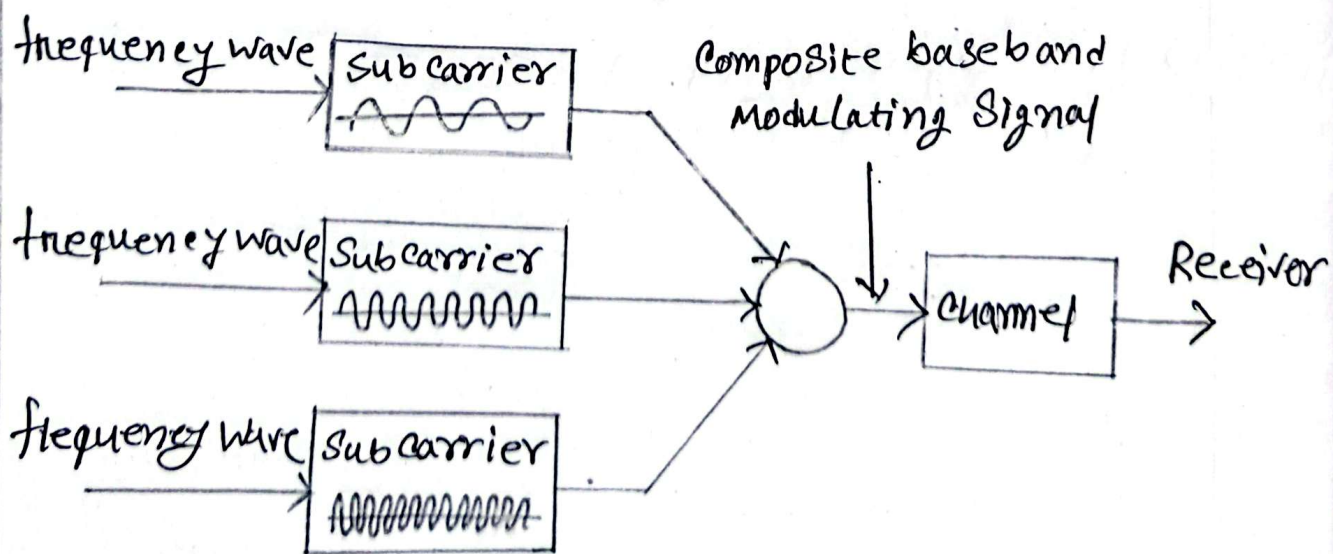 frequency wave
Subcarrier
Composite baseband
Modulating Signal
frequency wave
Subcarrier
Receiver
Channel
frequency wave
Subcarrier